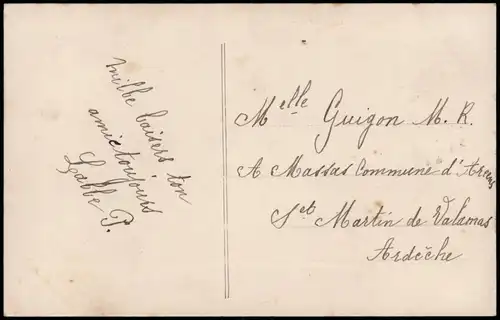 mille baisers ton
amie toujours
Labbe P.
Melle Guigon M. R.
A Massas Commune d'Arcens
St Martin de Valamas
Ardèche